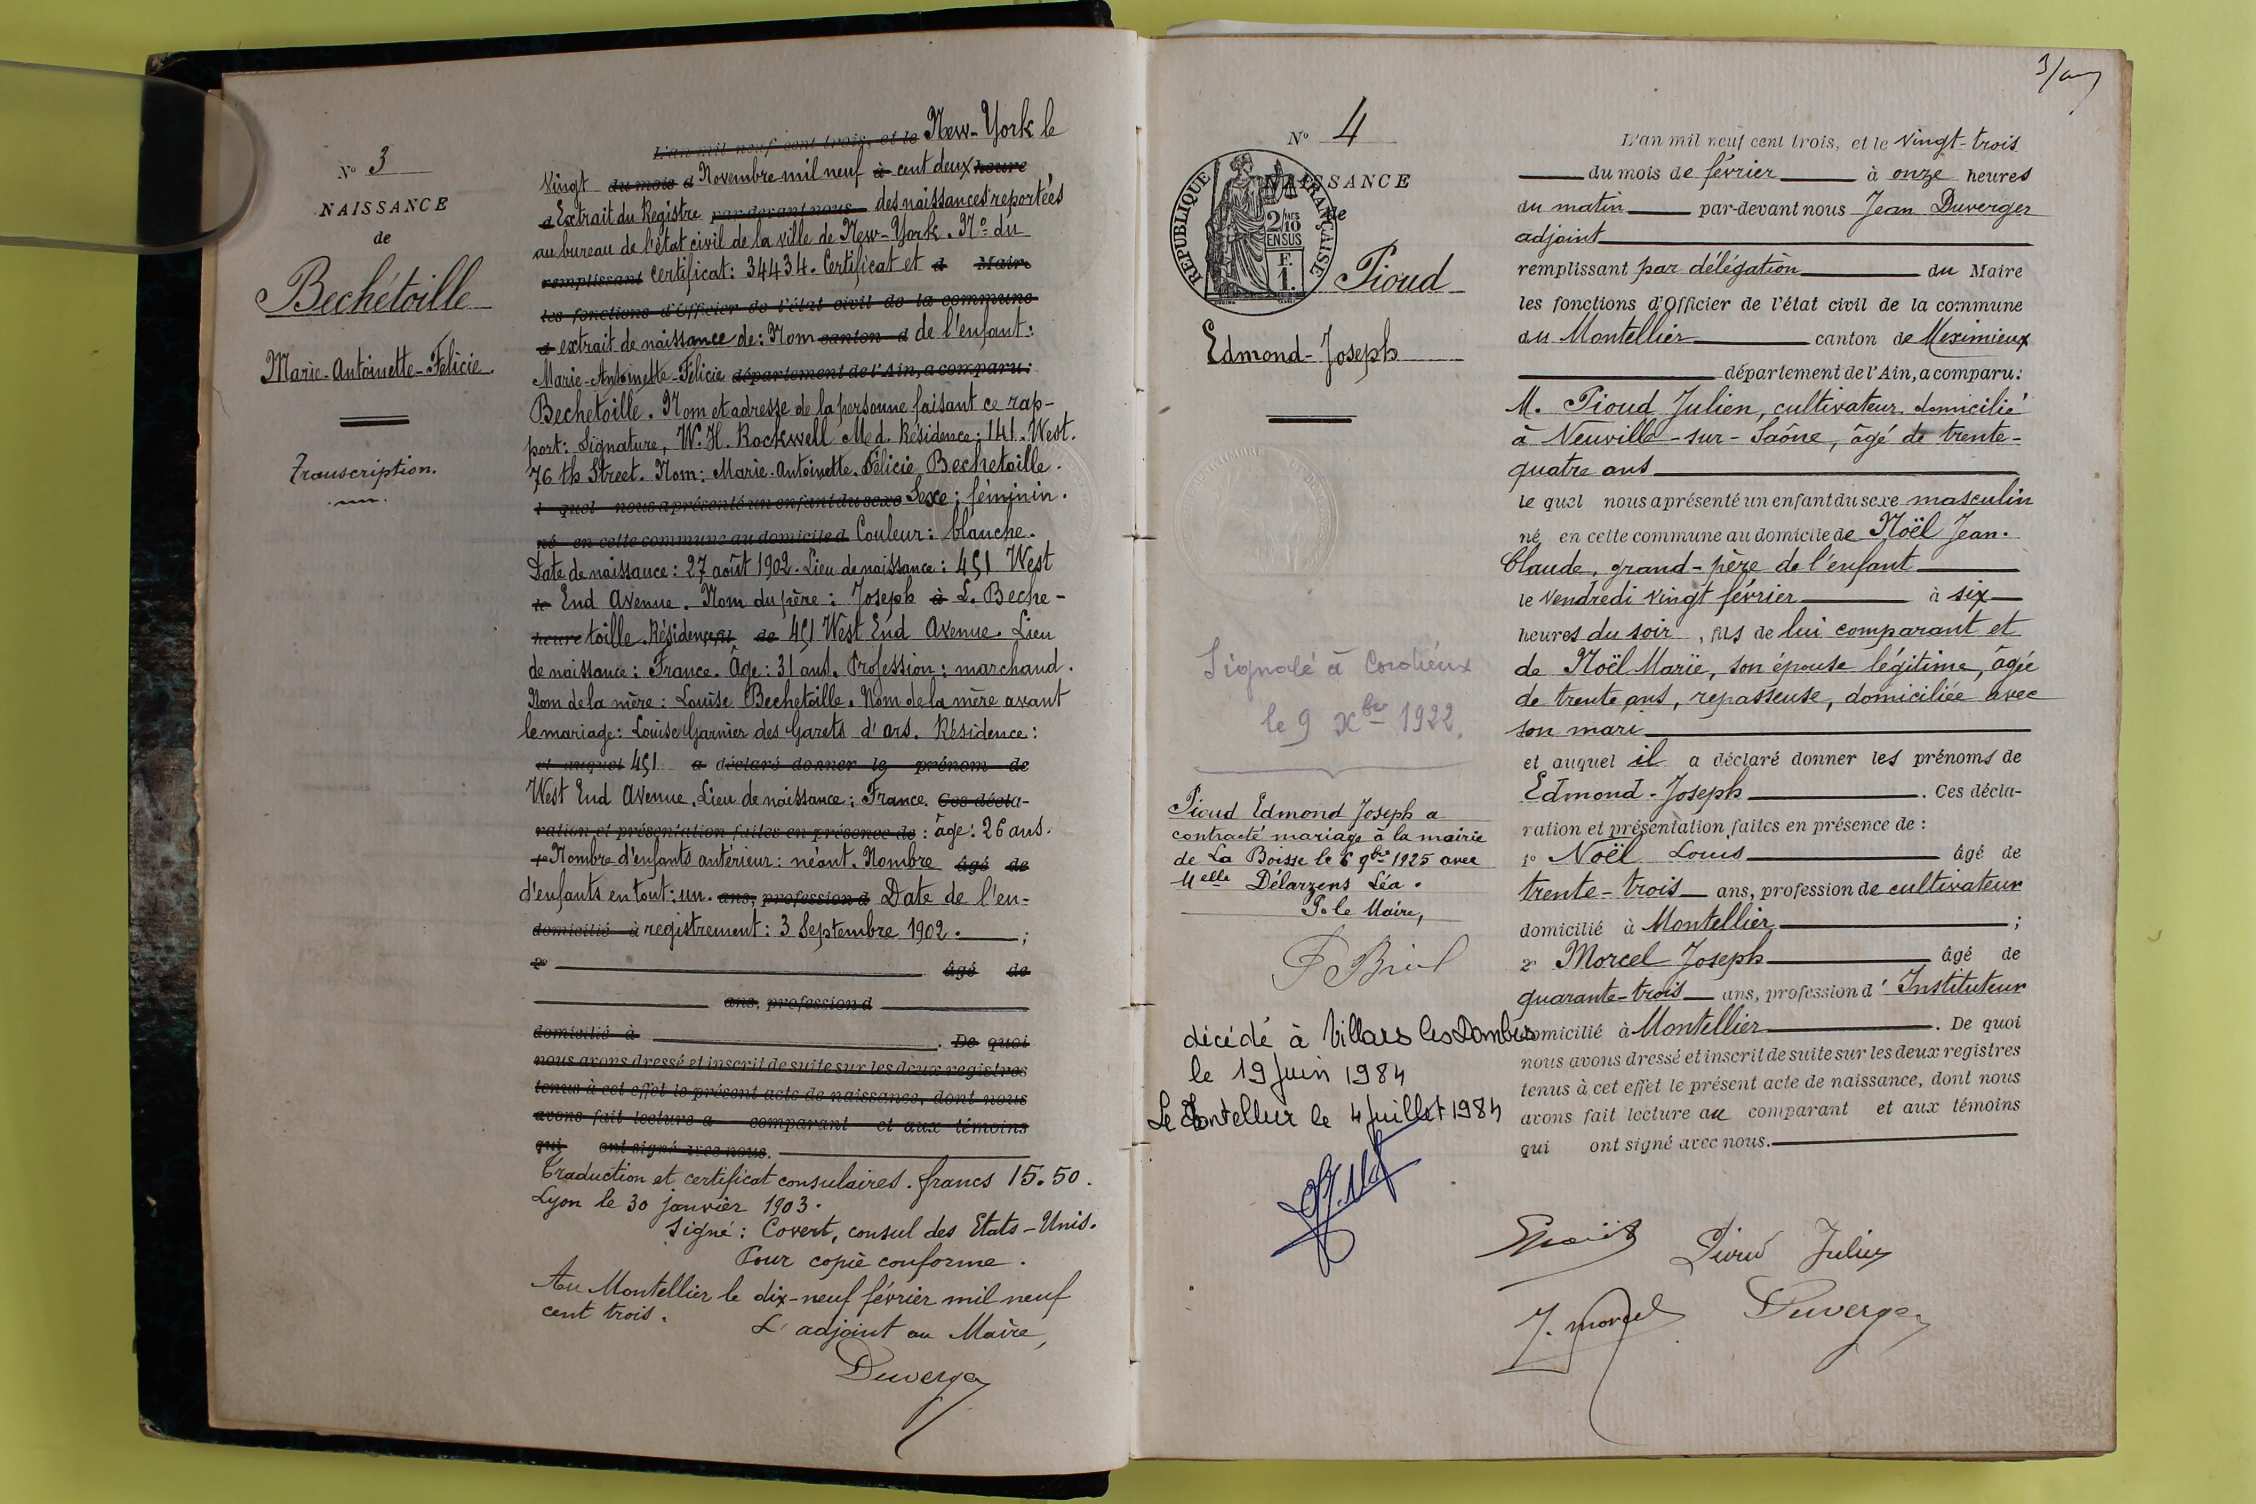 N° 3
NAISSANCE
de
Bechétoille
Marie-Antoinette-Félicie.
Transcription.
L'an mil neuf cent trois, et le New-York le
vingt du mois d Novembre mil neuf à cent deux heure
d Extrait du Registre par devant nous des naissances reportées
au bureau de l'état civil de la ville de New-York. N° du
remplissant certificat: 34434. Certificat et d Maire
les fonctions d'Officier de l'état civil de la commune
d extrait de naissance de: Nom canton d de l'enfant:
Marie-Antoinette-Félicie département de l'Ain, a comparu:
Bechetoille. Nom et adresse de la personne faisant ce rap-
port: Signature, W. H. Rockwell Med. Résidence: 141. West.
76 th Street. Nom: Marie-Antoinette-Félicie Bechetoille.
l quel nous a présenté un enfant du sexe Sexe: féminin.
né en cette commune au domicile d Couleur: blanche.
Date de naissance: 27 août 1902. Lieu de naissance: 451 West
le End Avenue. Nom du père: Joseph à L. Beche-
heure toille. Résidence, fil de 451 West End Avenue. Lieu
de naissance: France. Âge: 31 ans. Profession: marchand.
Nom de la mère: Louise Bechetoille. Nom de la mère avant
le mariage: Louise Garnier des Garets d'ars. Résidence:
et auquel 451 a déclaré donner le prénom de
West End Avenue. Lieu de naissance: France. Ces décla-
ration et présentation faites en présence de: âge: 26 ans.
1° Nombre d'enfants antérieur: néant. Nombre âgé de
d'enfants en tout: un. ans, profession d Date de l'en-
domicilié à registrement: 3 Septembre 1902. ;
2° âgé de
ans, profession d
domicilié à . De quoi
nous avons dressé et inscrit de suite sur les deux registres
tenus à cet effet le présent acte de naissance, dont nous
avons fait lecture a comparant et aux témoins
qui ont signé avec nous.
Traduction et certificat consulaires. francs 15.50.
Lyon le 30 janvier 1903.
Signé: Covert, consul des Etats-Unis.
Pour copie conforme.
Au Montellier le dix-neuf février mil neuf
cent trois.
L'adjoint au Maire,
Duverger
N° 4
NAISSANCE
de
RÉPUBLIQUE FRANÇAISE
2/10 EN SUS
F.
1.
Pioud
Edmond-Joseph
Signalé à Cordieux
le 9 Xbre 1922.
Pioud Edmond Joseph a
contracté mariage à la mairie
de La Boisse le 6 9bre 1925 avec
Melle Délarzens Léa.
P. le Maire,
décédé à Villars les Dombes
le 19 Juin 1984
Le Montellier le 4 Juillet 1984
L'an mil neuf cent trois, et le vingt-trois
du mois de février à onze heures
du matin par-devant nous Jean Duverger
adjoint
remplissant par délégation du Maire
les fonctions d'Officier de l'état civil de la commune
du Montellier canton de Meximieux
département de l'Ain, a comparu:
M. Pioud Julien, cultivateur domicilié
à Neuville-sur-Saône, âgé de trente-
quatre ans
le quel nous a présenté un enfant du sexe masculin
né en cette commune au domicile de Noël Jean-
Claude, grand-père de l'enfant
le vendredi vingt février à six
heures du soir, fils de lui comparant et
de Noël Marie, son épouse légitime, âgée
de trente ans, repasseuse, domiciliée avec
son mari
et auquel il a déclaré donner les prénoms de
Edmond-Joseph . Ces décla-
ration et présentation faites en présence de:
1° Noël Louis âgé de
trente-trois ans, profession de cultivateur
domicilié à Montellier ;
2° Morcel Joseph âgé de
quarante-trois ans, profession d'Instituteur
domicilié à Montellier . De quoi
nous avons dressé et inscrit de suite sur les deux registres
tenus à cet effet le présent acte de naissance, dont nous
avons fait lecture au comparant et aux témoins
qui ont signé avec nous.
Pioud Julien
J. Morcel Duverger